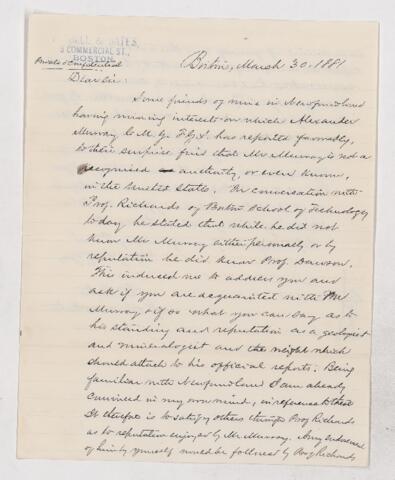 BELL & BATES,
3 COMMERCIAL ST.,
BOSTON
Private & Confidential
Boston, March 30. 1881
Dear Sir
Some friends of mine in Newfoundland
having mining interests on which Alexander
Murray C.M.G. F.G.S. has reported favorably,
to their surprise find that Mr Murray is not a
recognised authority, or even known,
in the United States. In conversation with
Prof. Richards of Boston School of Technology
today he stated that while he did not
know Mr Murray either personally or by
reputation he did know Prof. Dawson.
This induced me to address you and
ask if you are acquainted with Mr
Murray & if so what you can say as to
his standing and reputation as a geologist
and mineralogist and the weight which
should attach to his official reports. Being
familiar with Newfoundland I am already
convinced in my own mind, in reference to these
It therefore is to satisfy others through Prof Richards
as to reputation enjoyed by Mr. Murray. Any endorsement
of him by yourself would be followed by Prof Richards